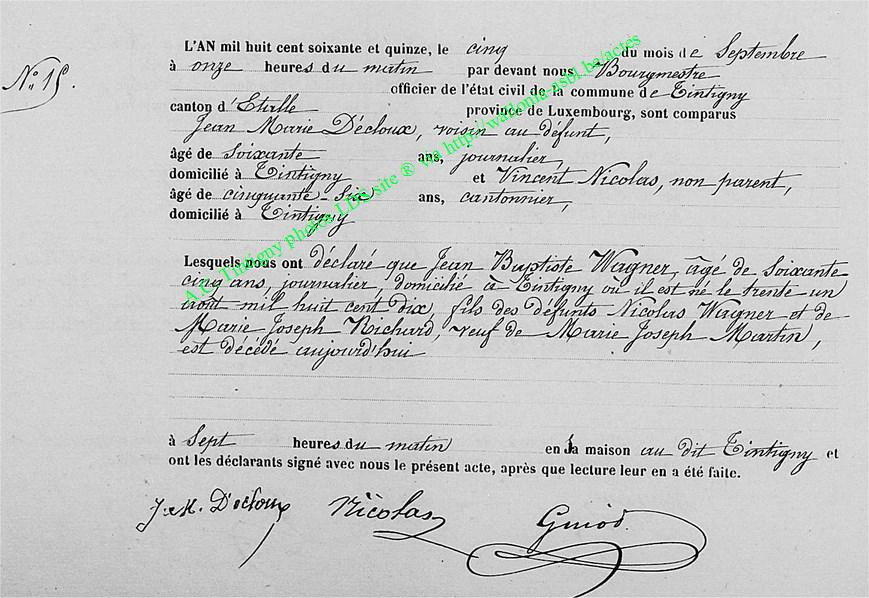 N° 15.
L'AN mil huit cent soixante et quinze, le cinq du mois de Septembre
à onze heures du matin par devant nous Bourgmestre
officier de l'état civil de la commune de Tintigny
canton d'Etalle province de Luxembourg, sont comparus
Jean Marie Décloux, voisin au défunt,
âgé de soixante ans, journalier,
domicilié à Tintigny et Vincent Nicolas, non parent,
âgé de cinquante-six ans, cantonnier,
domicilié à Tintigny
Lesquels nous ont déclaré que Jean Baptiste Wagner, âgé de soixante
cinq ans, journalier, domicilié à Tintigny où il est né le trente un
août mil huit cent dix, fils des défunts Nicolas Wagner et de
Marie Joseph Richard, veuf de Marie Joseph Martin,
est décédé aujourd'hui
à sept heures du matin en sa maison au dit Tintigny et
ont les déclarants signé avec nous le présent acte, après que lecture leur en a été faite.
J.M. Décloux Nicolas Guiod
A.C. Tintigny photos LDS site ® via http://wallonia-asbl.be/actes